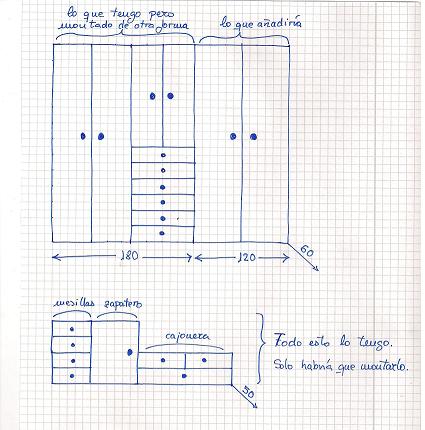 lo que tengo pero
montado de otra forma
lo que añadiría
180
120
60
mesillas zapatero
cajonera
Todo esto lo tengo.
Solo habría que montarlo.
50